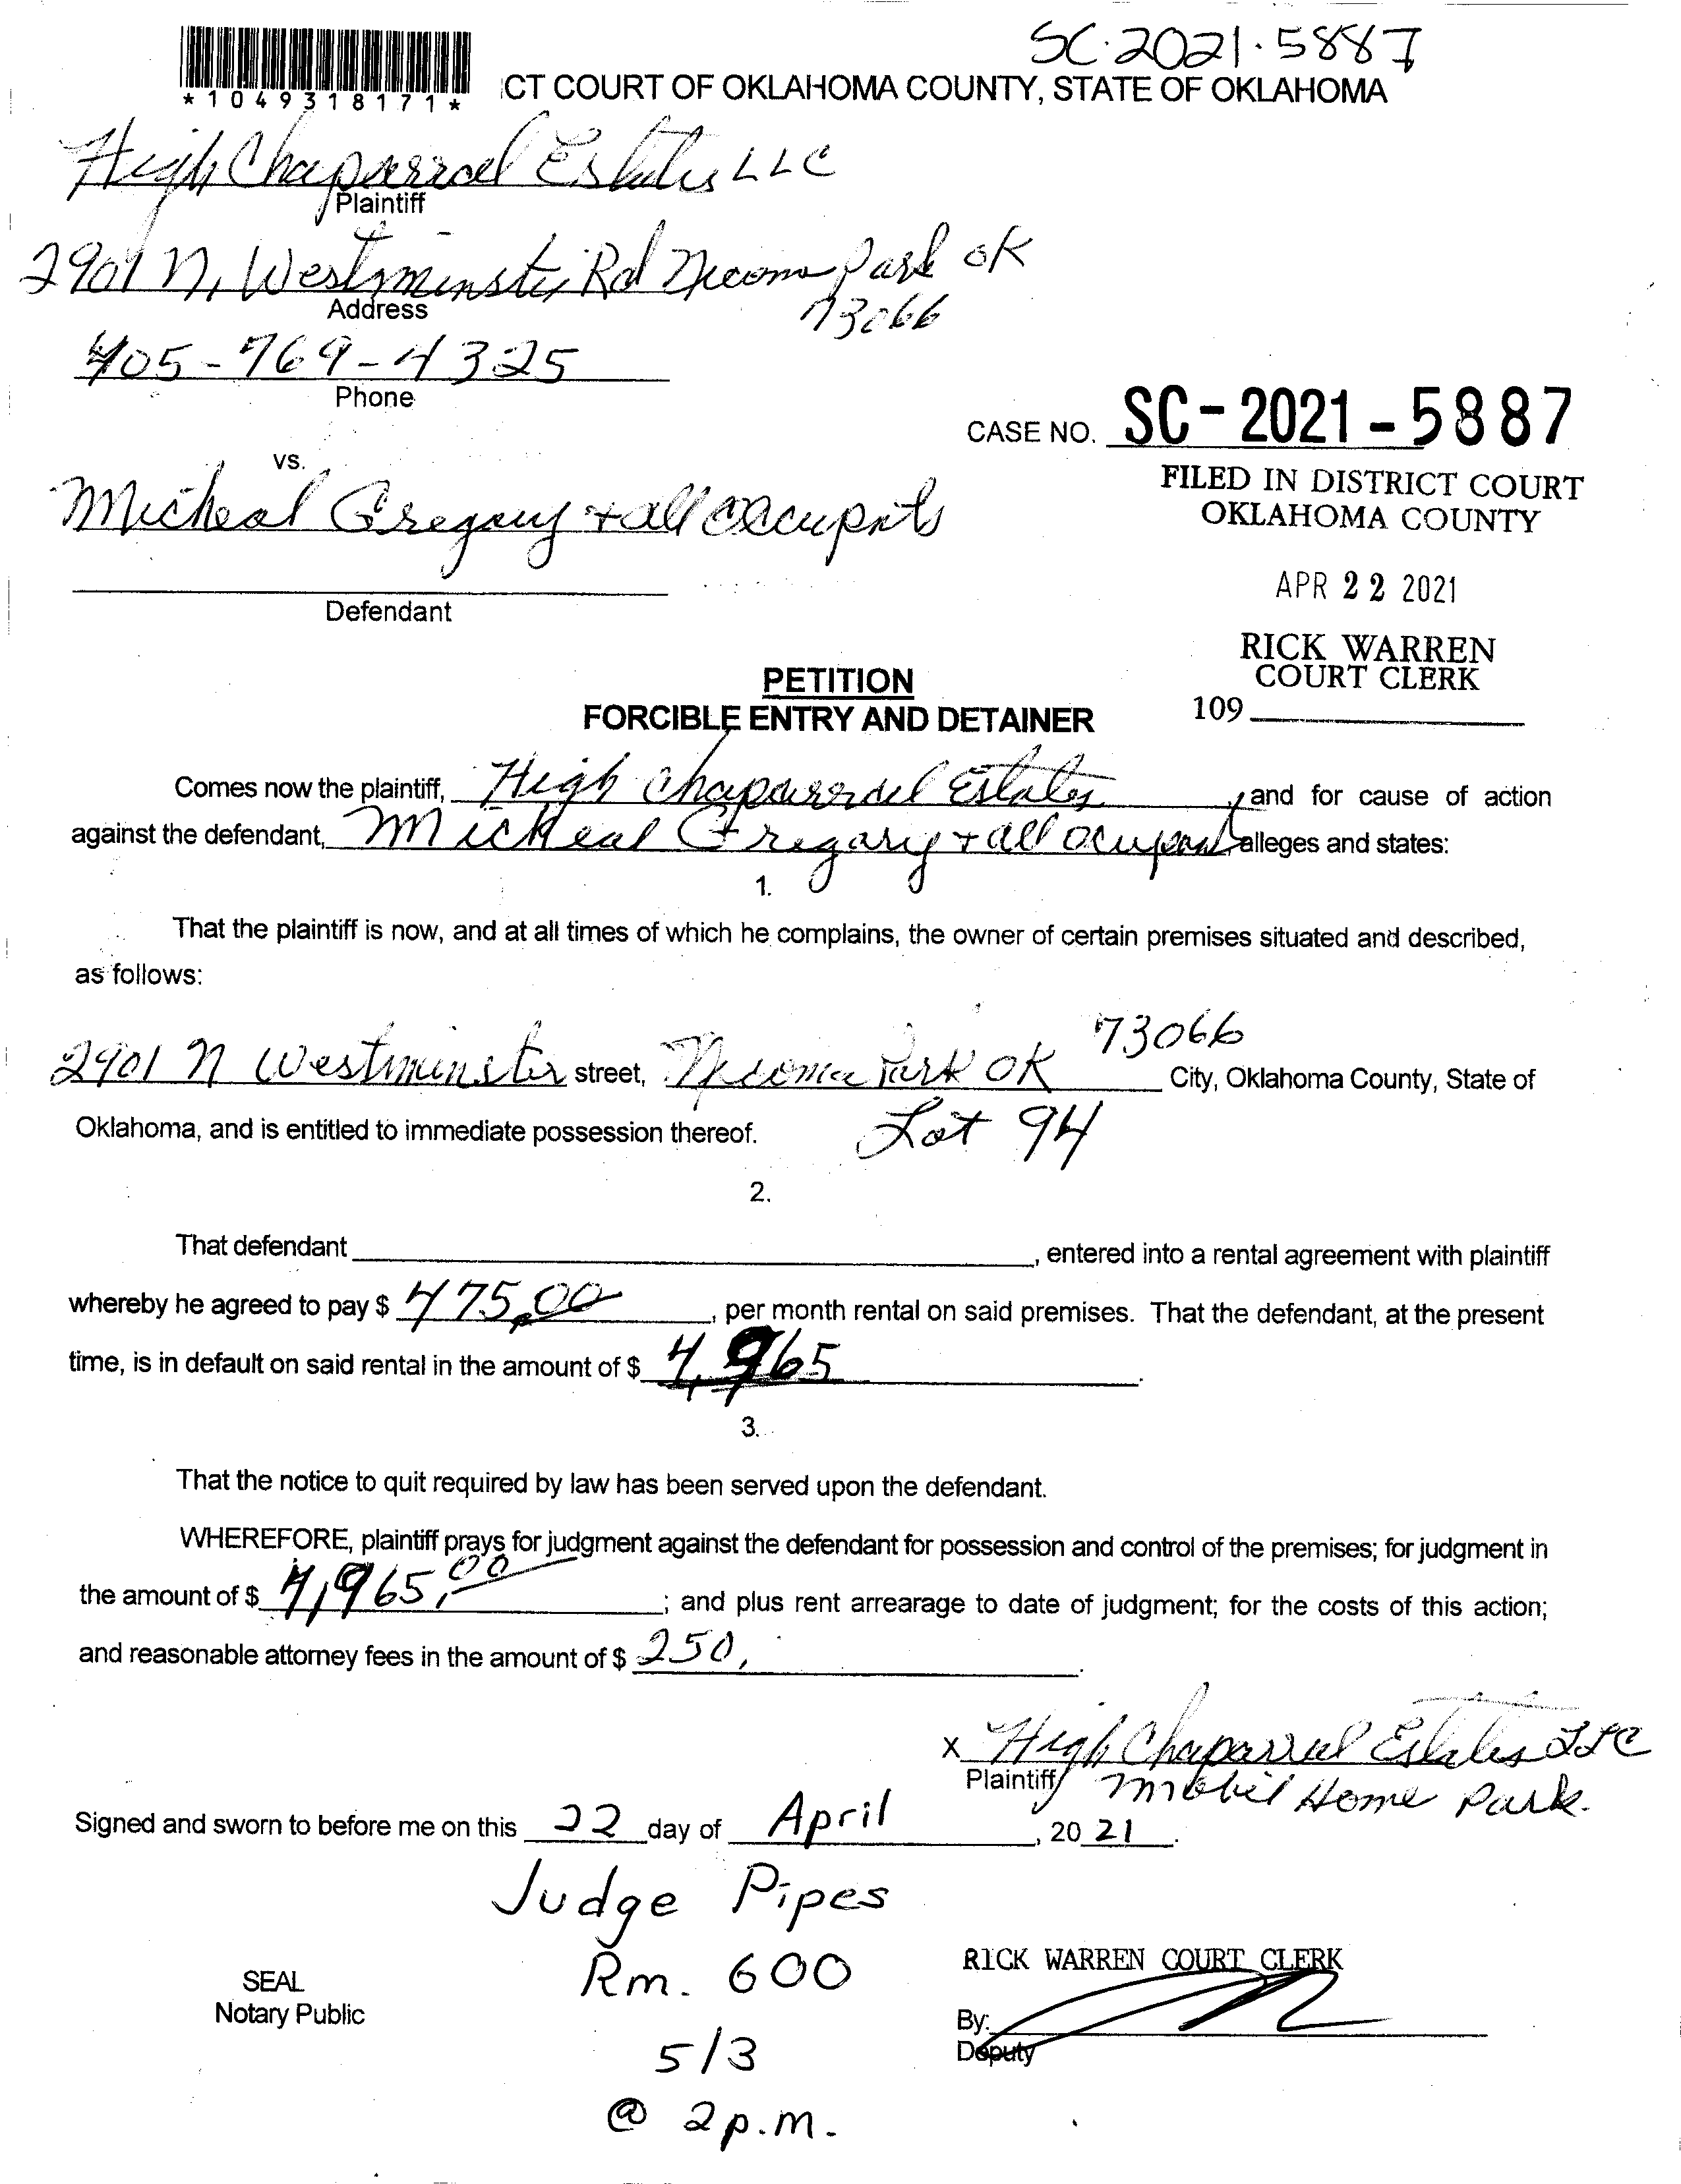 SC-2021-5887
*1049318171*
CT COURT OF OKLAHOMA COUNTY, STATE OF OKLAHOMA
High Chaparral Estates LLC
Plaintiff
2901 N. Westminster Rd Nicoma Park OK
73066
Address
405-769-4325
Phone
CASE NO. SC-2021-5887
vs.
FILED IN DISTRICT COURT
OKLAHOMA COUNTY
Micheal Gregory + all Occupnts
APR 22 2021
Defendant
RICK WARREN
COURT CLERK
109
PETITION
FORCIBLE ENTRY AND DETAINER
Comes now the plaintiff, High Chaparral Estates, and for cause of action
against the defendant, Micheal Gregary + all ocupant alleges and states:
1.
That the plaintiff is now, and at all times of which he complains, the owner of certain premises situated and described,
as follows:
2901 N Westminster street, Nicoma Park OK 73066 City, Oklahoma County, State of
Oklahoma, and is entitled to immediate possession thereof. Lot 94
2.
That defendant , entered into a rental agreement with plaintiff
whereby he agreed to pay $ 475.00, per month rental on said premises. That the defendant, at the present
time, is in default on said rental in the amount of $ 4,965.
3.
That the notice to quit required by law has been served upon the defendant.
WHEREFORE, plaintiff prays for judgment against the defendant for possession and control of the premises; for judgment in
the amount of $ 4,965.00; and plus rent arrearage to date of judgment; for the costs of this action;
and reasonable attorney fees in the amount of $ 250.
x High Chaparral Estates LLC
Plaintiff Mobil Home Park.
Signed and sworn to before me on this 22 day of April, 20 21.
Judge Pipes
Rm. 600
5/3
@ 2p.m.
SEAL
Notary Public
RICK WARREN COURT CLERK
By:
Deputy